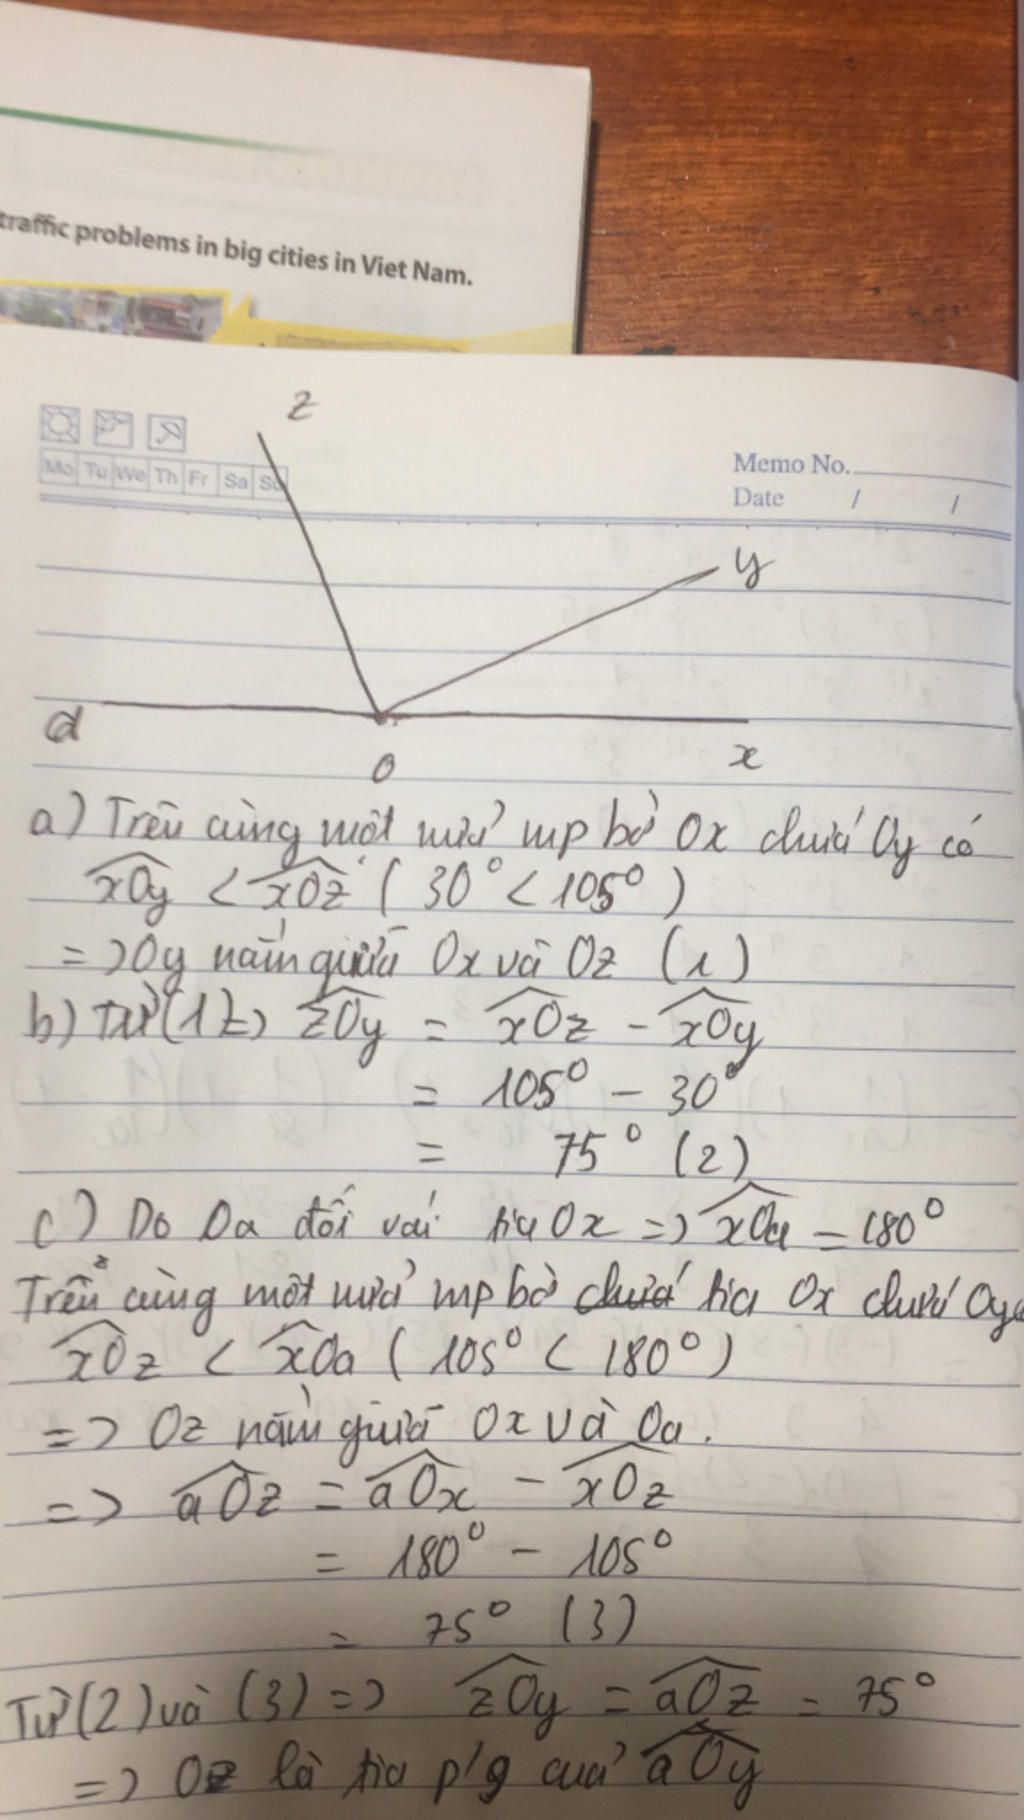 traffic problems in big cities in Viet Nam.
z
Mo Tu We Th Fr Sa Su
Memo No.
Date / /
y
a
O
x
a) Trên cùng một nửa mp bờ Ox chứa Oy có
xOy < xOz ( 30° < 105° )
=> Oy nằm giữa Ox và Oz (1)
b) Từ (1) zOy = xOz - xOy
= 105° - 30°
= 75° (2)
c) Do Oa đối với tia Ox => xOa = 180°
Trên cùng một nửa mp bờ chứa tia Ox chứa Oy
xOz < xOa ( 105° < 180° )
=> Oz nằm giữa Ox và Oa.
=> aOz = aOx - xOz
= 180° - 105°
= 75° (3)
Từ (2) và (3) => zOy = aOz = 75°
=> Oz là tia p/g của aOy